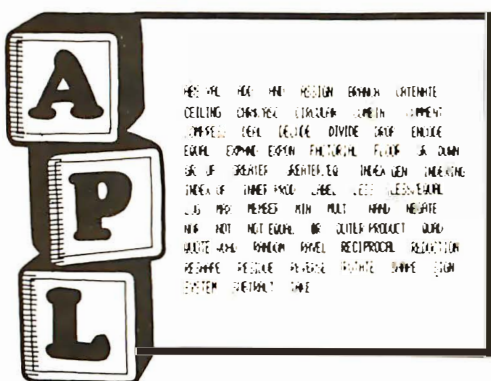 A
P
L
ABS VAL ADD AND ASSIGN BRANCH CATENATE
CEILING CIRCULAR COMMENT
COMPRESS DEAL DECODE DIVIDE DROP ENCODE
EQUAL EXPAND EXPON FACTORIAL FLOOR GR DOWN
GR UP GREATER GREATER EQ INDEX GEN INDEXING
INDEX OF INNER PROD LABEL LESS LESS/EQUAL
LOG MAX MEMBER MIN MULT NAND NEGATE
NOR NOT NOT EQUAL OR OUTER PRODUCT QUAD
QUOTE QUAD RANDOM RAVEL RECIPROCAL REDUCTION
RESHAPE RESIDUE REVERSE ROTATE SHAPE SIGN
SYSTEM SUBTRACT TAKE